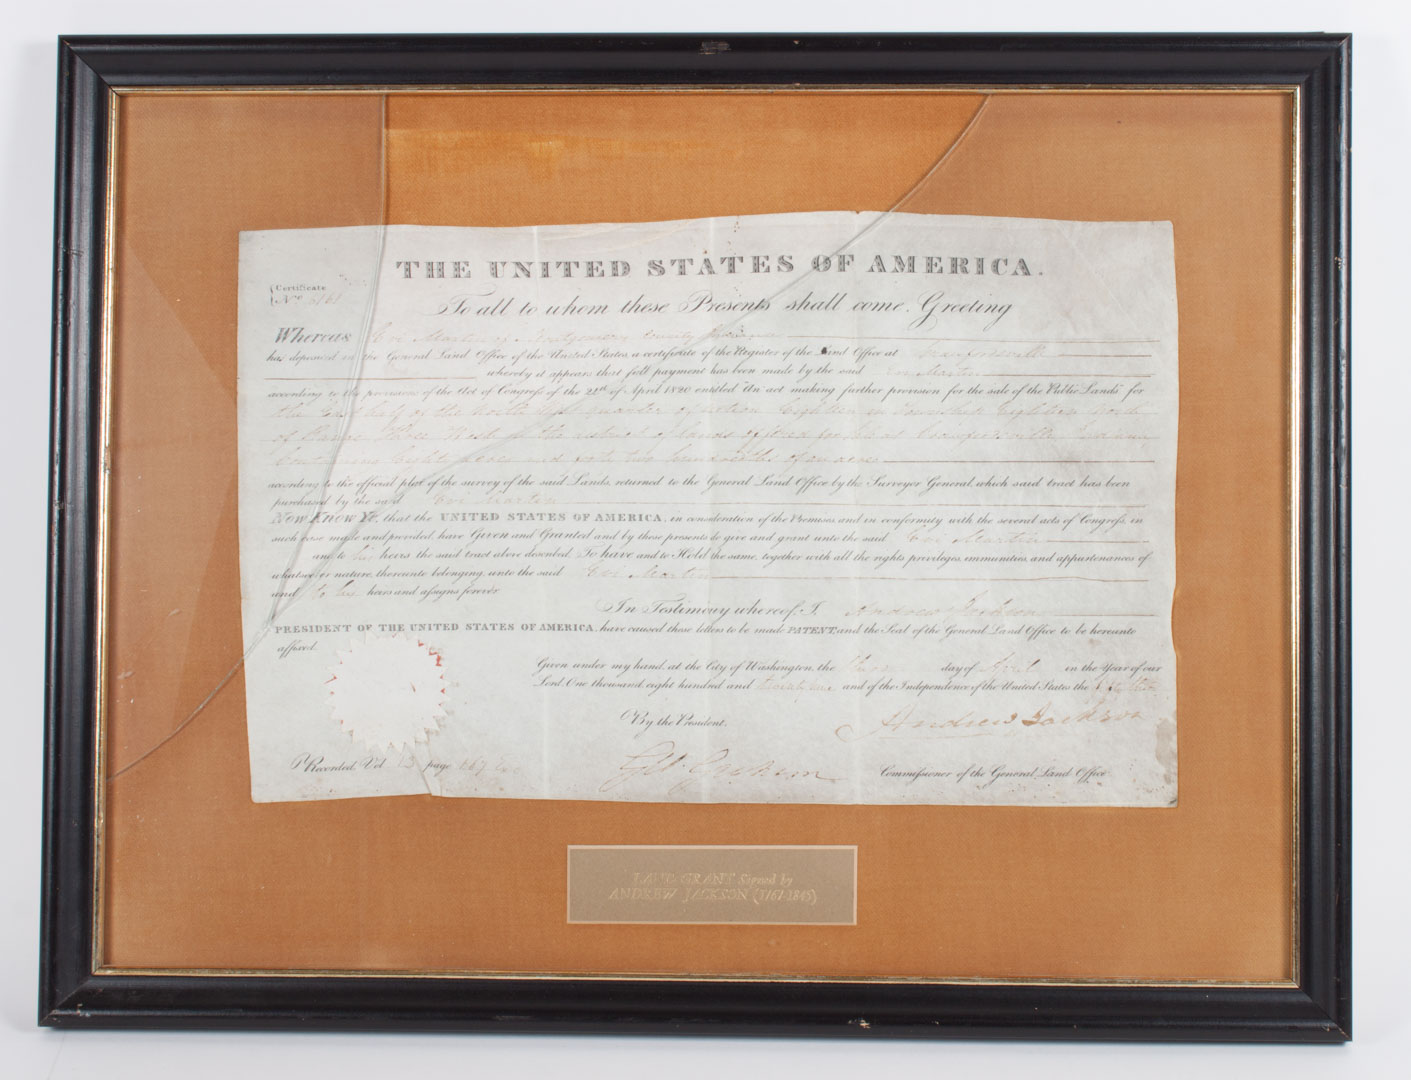 THE UNITED STATES OF AMERICA.
Certificate
No. 6161
To all to whom these Presents shall come, Greeting
Whereas Evi Martin of Montgomery County Indiana
has deposited in the General Land Office of the United States, a certificate of the Register of the Land Office at Crawfordsville
whereby it appears that full payment has been made by the said Evi Martin
according to the provisions of the Act of Congress of the 24th of April 1820 entitled "An act making further provision for the sale of the Public Lands" for
the East half of the North West quarter of section Eighteen in Township Eighteen North
of Range Three West in the district of lands offered for sale at Crawfordsville Indiana
Containing Eighty acres and forty two hundredths of an acre
according to the official plat of the survey of the said Lands, returned to the General Land Office by the Surveyor General, which said tract has been
purchased by the said Evi Martin
Now Know Ye, that the UNITED STATES OF AMERICA, in consideration of the Premises, and in conformity with the several acts of Congress, in
such case made and provided, have Given and Granted and by these presents do give and grant unto the said Evi Martin
and to his heirs the said tract above described. To have and to Hold the same, together with all the rights, privileges, immunities, and appurtenances of
whatsoever nature, thereunto belonging, unto the said Evi Martin
and to his heirs and assigns forever
In Testimony whereof, I, Andrew Jackson
PRESIDENT OF THE UNITED STATES OF AMERICA, have caused these letters to be made PATENT, and the Seal of the General Land Office to be hereunto
affixed.
Given under my hand, at the City of Washington, the day of April in the Year of our
Lord, One thousand, eight hundred and thirty one and of the Independence of the United States the fifty fifth
By the President, Andrew Jackson
Recorded, Vol page Commissioner of the General Land Office
LAND GRANT Signed by
ANDREW JACKSON (1767-1845)